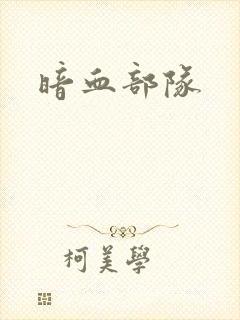 暗血部隊
柯美學